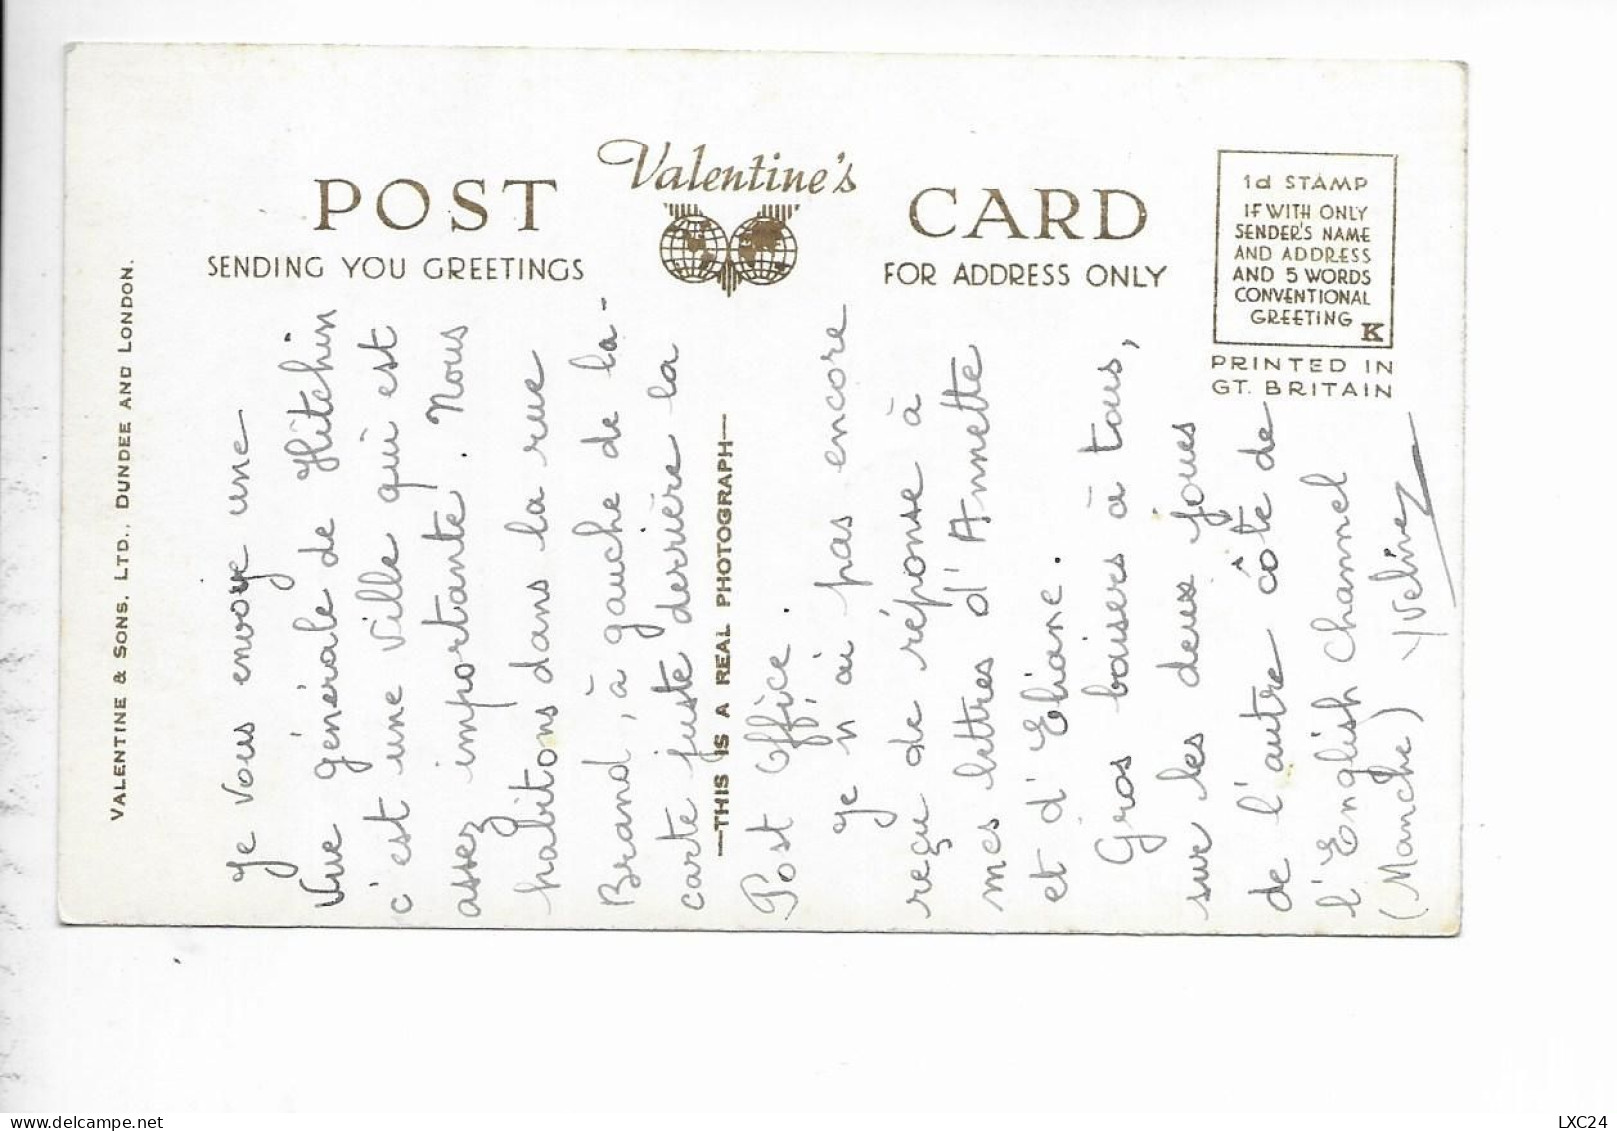 Valentine's
POST CARD
SENDING YOU GREETINGS
FOR ADDRESS ONLY
1d STAMP
IF WITH ONLY
SENDER'S NAME
AND ADDRESS
AND 5 WORDS
CONVENTIONAL
GREETING
K
PRINTED IN
GT. BRITAIN
VALENTINE & SONS. LTD., DUNDEE AND LONDON.
—THIS IS A REAL PHOTOGRAPH—
Je vous envoye une
vue générale de Hitchin
c'est une ville qui est
assez importante. Nous
habitons dans la rue
Brand, à gauche de la
carte juste derrière la
Post Office.
Je n'ai pas encore
reçu de réponse à
mes lettres d'Annette
et d'Eliane.
Gros baisers à tous,
sur les deux joues
de l'autre côte de
l'English Channel
(Manche) Yveline
LXC24